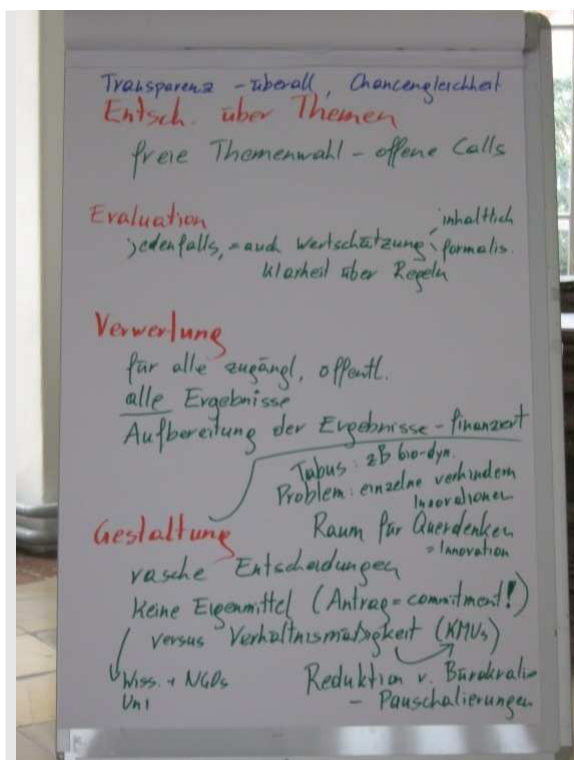 Transparenz - überall, Chancengleichheit
Entsch. über Themen
freie Themenwahl - offene Calls
Evaluation
jedenfalls, = auch Wertschätzung
inhaltlich
formalis.
Klarheit über Regeln
Verwertung
für alle zugängl, öffentl.
alle Ergebnisse
Aufbereitung der Ergebnisse - finanziert
Tabus: zB bio-dyn.
Problem: einzelne verhindern
Innovationen
Raum für Querdenken
= Innovation
Gestaltung
rasche Entscheidungen
Keine Eigenmittel (Antrag = commitment!)
versus Verhältnismäsigkeit (KMUs)
Wiss. + NGOs
Uni
Reduktion v. Bürokratie
- Pauschalierungen